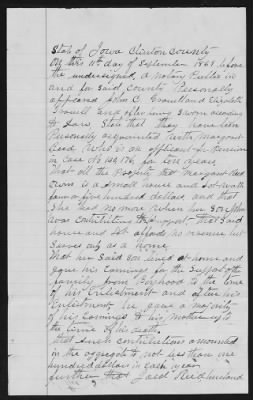 State of Iowa Clinton County
On this 11th day of September 1868 before
the undersigned, a Notary Public in
and for said County Personally
appeared John C. and Elizabeth
and after being Sworn according
to Law State that they have been
Personally acquainted with Margaret
Reed, Who is an applicant for Pension
in Case of No for ten years
That all the Property that Margaret Reed
owns is a small house and Lot worth
four or five hundred dollars and that
She had no more when her Son
was contributing to her support that said
house and Lot affords no revenue but
Serves only as a home
That her said Son lived at home and
gave his Earnings for the Support of the
family from Boyhood to the time
of his Enlistment and after his
Enlistment he gave a majority
of his Earnings to his Mother up to
the time of his death
that Such contributions amounted
in the aggregate to not less than one
hundred dollars in each year
further that Jacob Reed husband